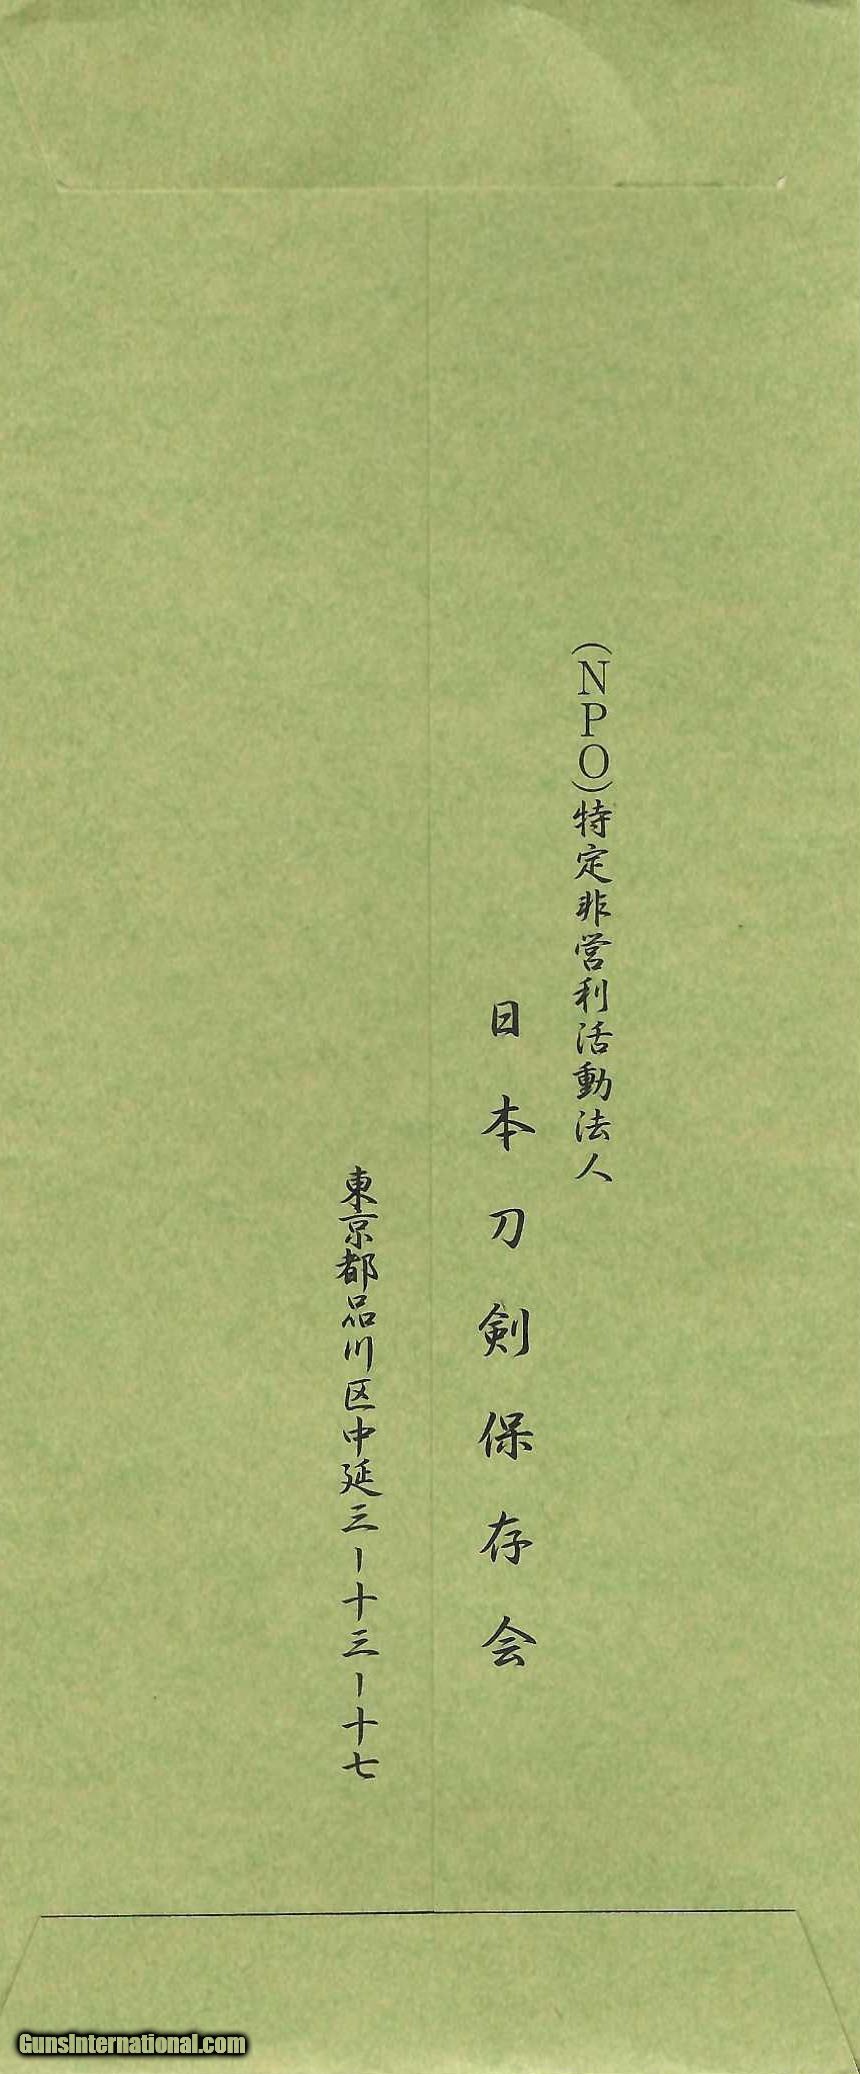 (NPO)特定非営利活動法人
日本刀剣保存会
東京都品川区中延三ー十三ー十七
GunsInternational.com